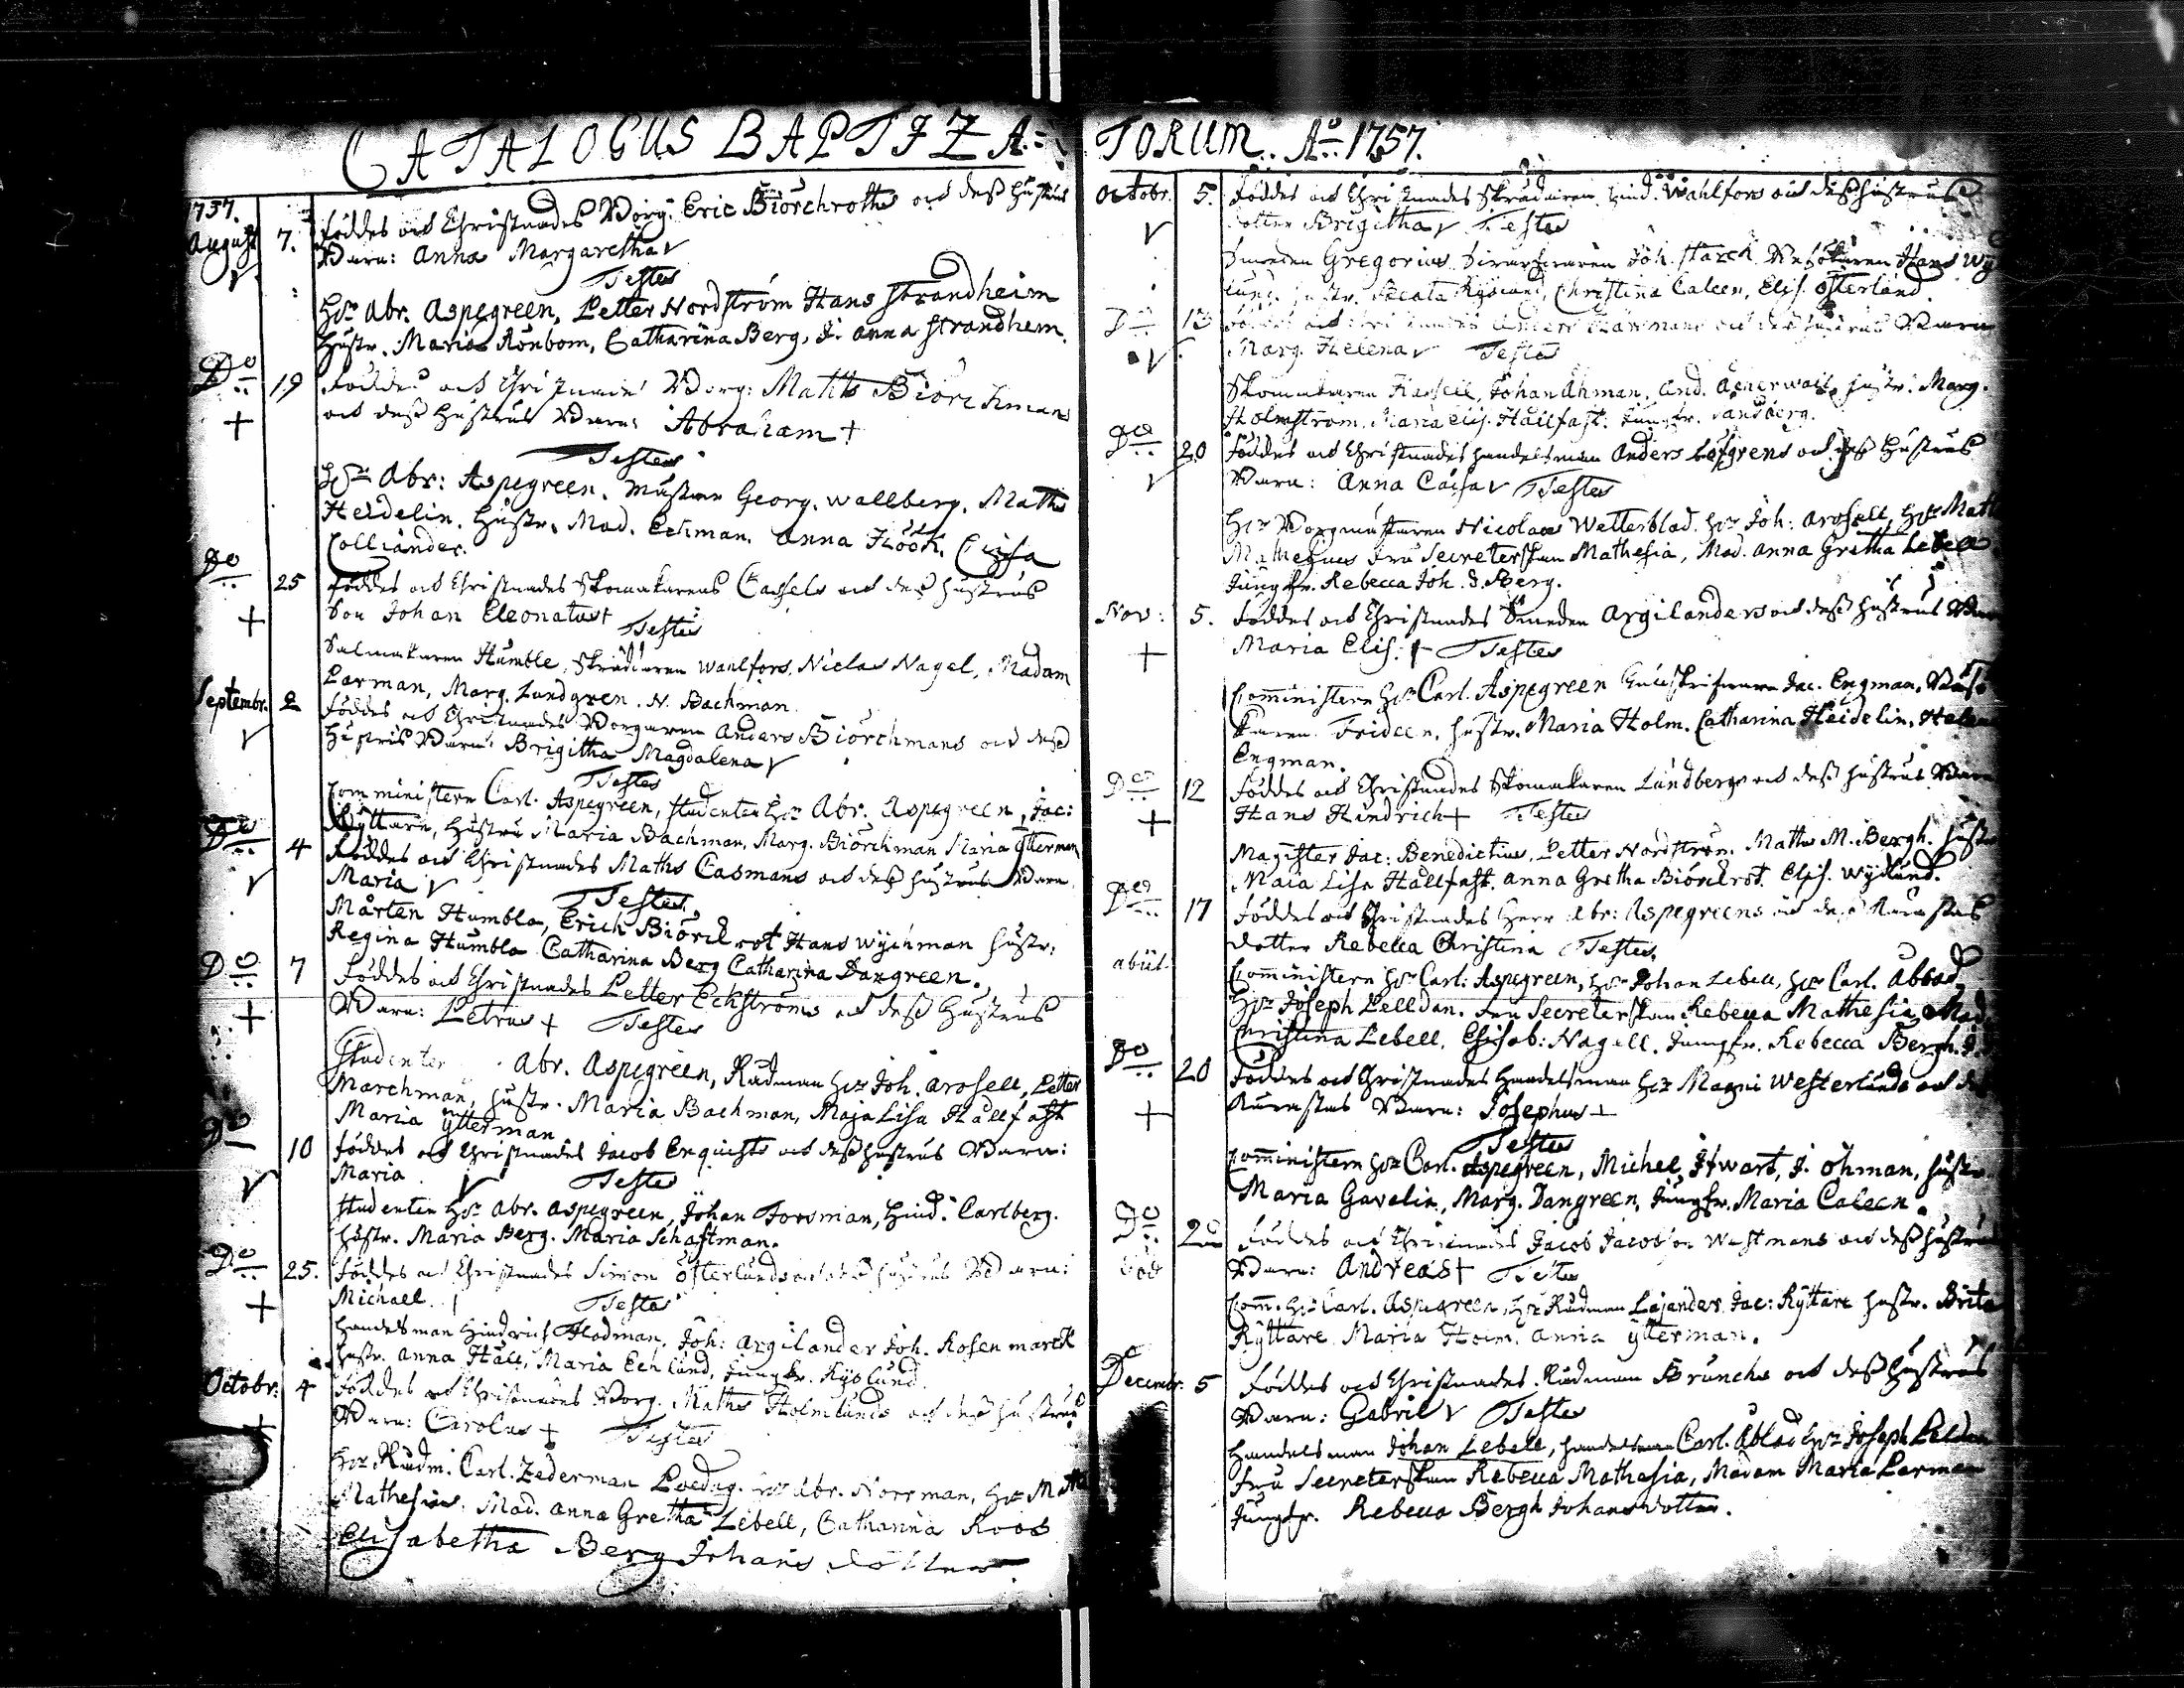 CATALOGUS BAPTIZA=
1757.
August 7. föddes och Christnades Borg: Eric Biörchroths och dess hustrus
Barn: Anna Margaretha
Testes
Hr Abr. Aspegreen, Petter Nordström Hans Strandheim
Hustr. Maria Rönbom, Catharina Berg, J. Anna Strandhem.
Do 19 föddes och Christnades Borg: Matths Biörckmans
och dess Hustrus Barn: Abraham +
Testes
Hr Abr: Aspegreen. Mästar Georg. Wallberg. Maths
Heidelin. Hustr. Mad. Eckman. Anna Höök. Cajsa
Colliander.
Do 25 föddes och Christnades Skomakarens Cassels och dess hustrus
Son Johan Eleonatus +
Testes
Salmakaren Humble, Skräddaren Wahlfors, Niclas Nagel, Madam
Larman, Marg. Lundgren. N. Bachman.
Septembr. 2 föddes och Christnades Borgaren Anders Biörchmans och dess
Hustrus Barn: Brigitha Magdalena
Testes
Comministern Carl. Aspegreen, Studenten Hr Abr. Aspegreen, Jac:
Ryttare, Hustru Maria Bachman, Marg. Biörchman Maria Ytterman
Do 4 föddes och Christnades Maths Casmans och dess hustrus Barn
Maria
Testes
Mårten Humbla, Erich Biörckrot Hans Wychman hustr:
Regina Humbla Catharina Berg Catharina Dangreen.
Do 7 föddes och Christnades Petter Eckströms och dess Hustrus
Barn: Petrus + Testes
Studenten Abr. Aspegreen, Rådman Hr Joh. Arosell, Petter
Marchman, hustr. Maria Bachman, Maja Lisa Hällfast
Maria Ytterman
Do 10 föddes och Christnades Jacob Enquists och dess hustrus Barn:
Maria Testes
Studenten Hr Abr. Aspegreen, Johan Forsman, Hind. Carlberg.
hustr. Maria Berg. Maria Schaftman.
Do 25. föddes och Christnades Simon Österlunds och dess hustrus Barn:
Michael. Testes
Handelsman Hindrich Flodman, Joh: Argilander Joh. Rosenmarck
hustr. Anna Häll, Maria Ecklund, Jungfr. Ryslund.
Octobr: 4 föddes och Christnades Borg. Maths Holmlunds och dess hustrus
Barn: Carolus + Testes
Hr Rådm. Carl. Zederman Hr Abr. Norrman, Hr Math
Mathesius. Mad. Anna Gretha Lebell, Catharina Roos
Elisabetha Berg Johans dotter.
TORUM. Ao 1757.
Octobr. 5. föddes och Christnades Skräddaren Hind. Wahlfors och dess hustrus
dotter Brigitha Testes
Smeden Gregorius Joh. Starck Hans Wy
lund. hustr. Beata Ryslund, Christina Caleen, Elis. Österlund.
Do 13 föddes och Christnades Anders och dess hustrus Barn
Marg. Helena Testes
Skomakaren Kassell, Johan Åhman, And. Åkerwall, hustr. Marg.
Holmström. Maria Elis. Hällfast. Jungfr. Sandberg.
Do 20 föddes och Christnades handelsman Anders Löfgrens och dess Hustrus
Barn: Anna Caisa Testes
Hr Borgmästaren Nicolaus Wetterblad. Hr Joh: Arosell, Hr Math
Mathesius Fru Secreterskan Mathesia, Mad. Anna Gretha Lebell
Jungfr. Rebecca Joh. d. Berg.
Nov: 5. föddes och Christnades Smeden Argilanders och dess hustrus Barn
Maria Elis: + Testes
Comministern Hr Carl. Aspegreen Jac. Engman,
Frideen, hustr. Maria Holm. Catharina Heidelin, Helena
Engman.
Do 12 föddes och Christnades Skomakaren Lundbergs och dess hustrus Barn
Hans Hindrich + Testes
Magister Jac: Benedictius, Petter Nordström. Maths M. Bergh. hustr
Maia Lisa Hällfast. Anna Gretha Biörckrot. Elis. Wydlund.
Do 17 föddes och Christnades Herr Abr: Aspegreens och dess
dotter Rebecca Christina Testes.
abiit. Comministern Hr Carl: Aspegreen, Hr Johan Lebell, Hr Carl. Ablad,
Hr Joseph Pelldan. Fru Secreterskan Rebecca Mathesia, Mad.
Christina Lebell. Elisab: Nagell. Jungfr. Rebecca Bergh. J.
Do 20 föddes och Christnades Handelsman Hr Magni Westerlunds och dess
Barn: Josephus +
Testes
Comministern Hr Carl. Aspegreen, Michel Stwart, J. Öhman, hustr.
Maria Gavelin, Marg. Dangreen, Jungfr. Maria Caleen.
Do föddes och Christnades Jacob Jacobson Wästmans och dess hustrus
död Barn: Andreas + Testes
Comm. Hr Carl. Aspegreen, Hr Rådman Lajander Jac: Ryttare hustr. Brita
Ryttare Maria Holm. Anna Ytterman.
Decembr. 5 föddes och Christnades Rådman Brunchs och dess Hustrus
Barn: Gabriel Testes
Handelsman Johan Lebell, handelsman Carl. Ablad Hr Joseph Peldan
Fru Secreterskan Rebecca Mathesia, Madam Maria Larman
Jungfr. Rebecca Bergh Johansdotter.